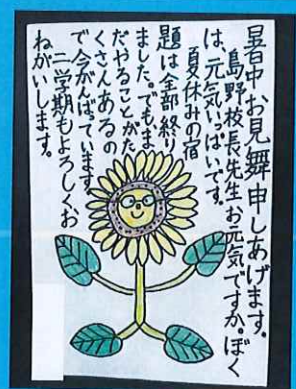 暑中お見舞申しあげます。
島野校長先生お元気ですか。ぼく
は、元気いっぱいです。
夏休みの宿
題は全部終り
ました。でもま
だやることがた
くさんあるの
で今がんばっています。
二学期もよろしくお
ねがいします。